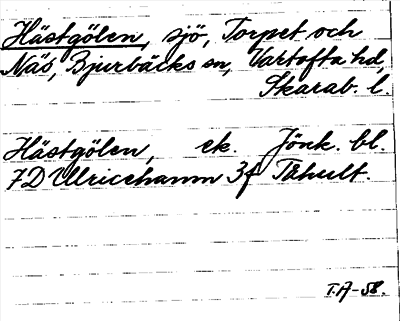 Hästgölen, sjö, Torpet och
Näs, Bjurbäcks sn, Vartofta hd,
Skarab. l.
Hästgölen, ek. Jönk. bl.
7D Ullricehamn 3f Tåhult.
T.A-58.